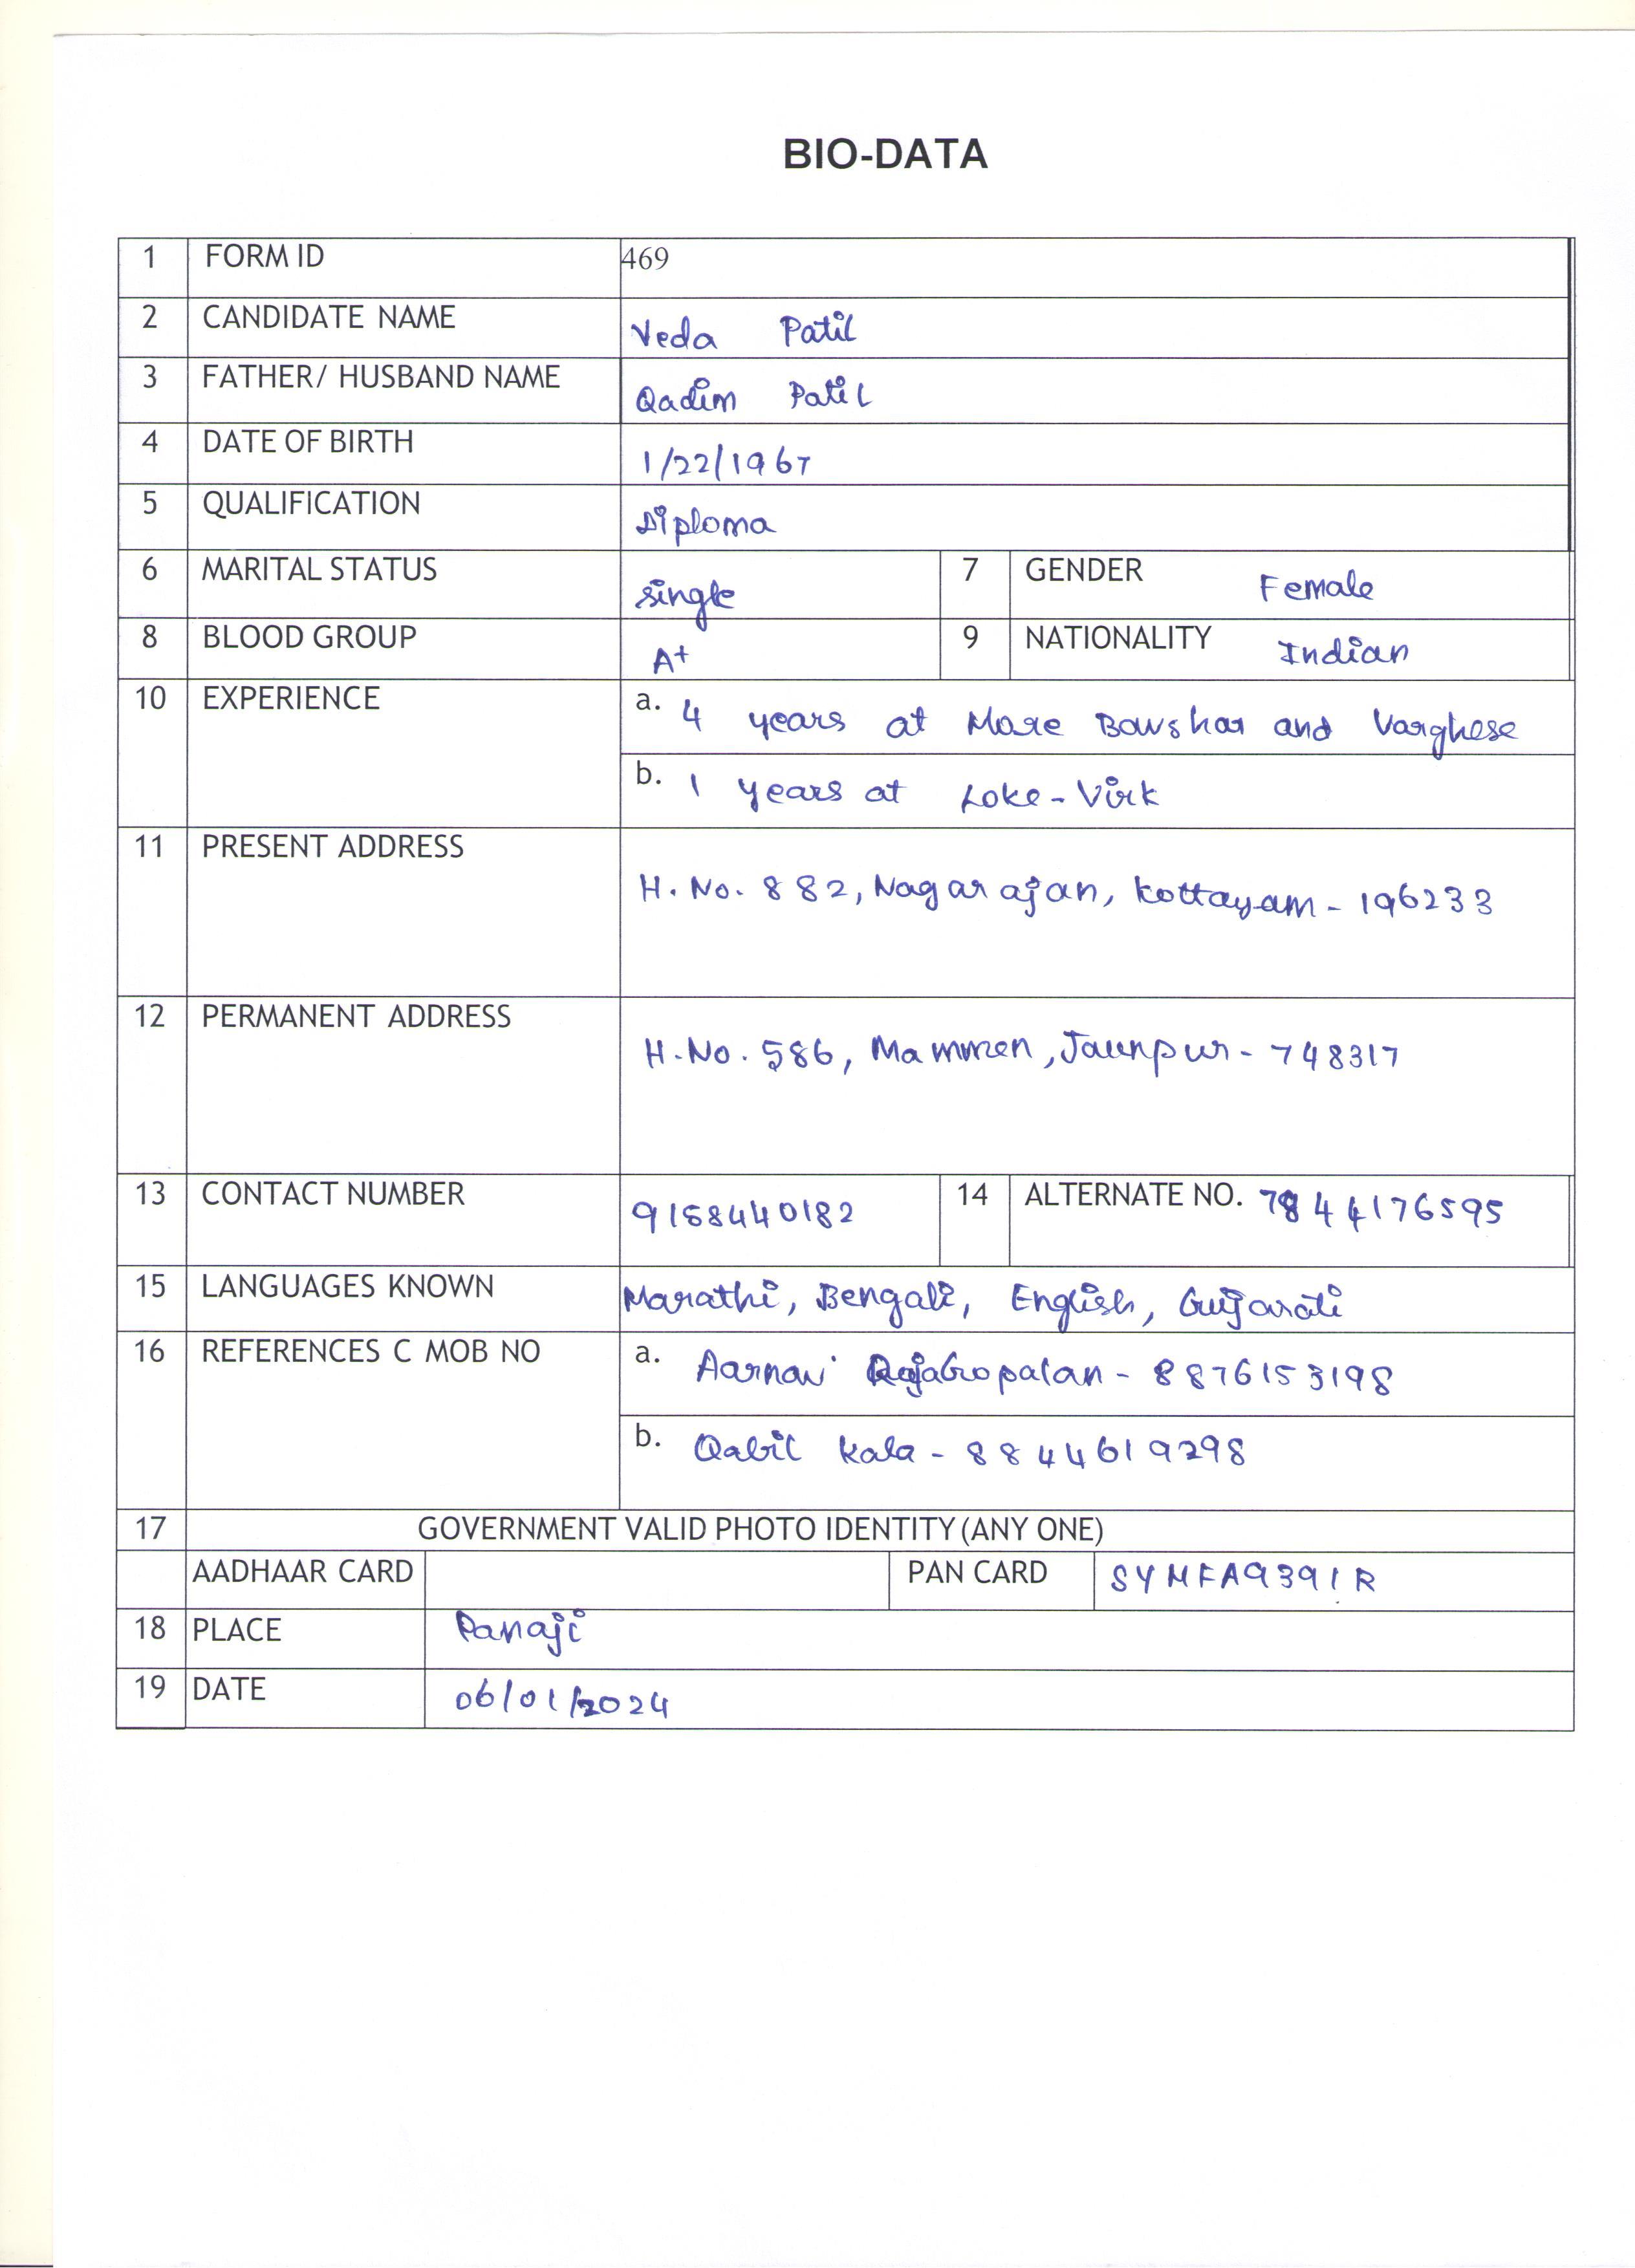 BIO-DATA
1 FORM ID 469
2 CANDIDATE NAME Veda Patil
3 FATHER/ HUSBAND NAME Qadim Patil
4 DATE OF BIRTH 1/22/1967
5 QUALIFICATION Diploma
6 MARITAL STATUS single 7 GENDER Female
8 BLOOD GROUP A+ 9 NATIONALITY Indian
10 EXPERIENCE a. 4 years at More Bawshar and Varghese
b. 1 years at Loke-Virk
11 PRESENT ADDRESS H.No. 882, Nagarajan, Kottayam - 196233
12 PERMANENT ADDRESS H.No. 586, Mammen, Jaunpur - 748317
13 CONTACT NUMBER 9158440182 14 ALTERNATE NO. 7844176595
15 LANGUAGES KNOWN Marathi, Bengali, English, Gujarati
16 REFERENCES C MOB NO a. Aarnav RajaGopalan - 8876153198
b. Qabil Kala - 8844619298
17 GOVERNMENT VALID PHOTO IDENTITY (ANY ONE)
AADHAAR CARD PAN CARD SYMFA9391R
18 PLACE Panaji
19 DATE 06/01/2024